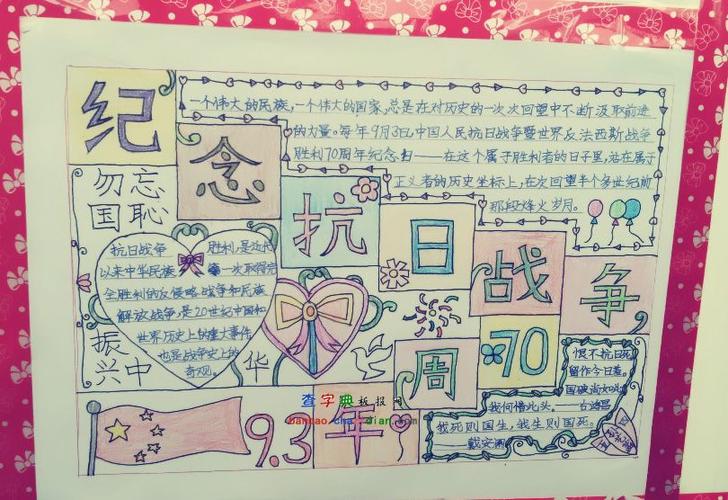 纪念抗日战争
70周年
一个伟大的民族,一个伟大的国家,总是在对历史的一次次回望中不断汲取前进
的力量。每年9月3日,中国人民抗日战争暨世界反法西斯战争
胜利70周年纪念日——在这个属于胜利者的日子里,站在属于
正义者的历史坐标上,在次回望半个多世纪前
那段烽火岁月。
勿忘
国耻
抗日战争 胜利,是近代
以来中华民族 一次取得完
全胜利的反侵略战争和民族
解放战争,是20世纪中国和
世界历史上的重大事件,
也是战争史上的
奇观。
振
兴中
华
9.3
恨不抗日死,
留作今日羞。
国破尚如此,
我何惜此头。——吉鸿昌
我死则国生,我生则国死。
戴安澜
查字典板报网
banbao.chazidian.com